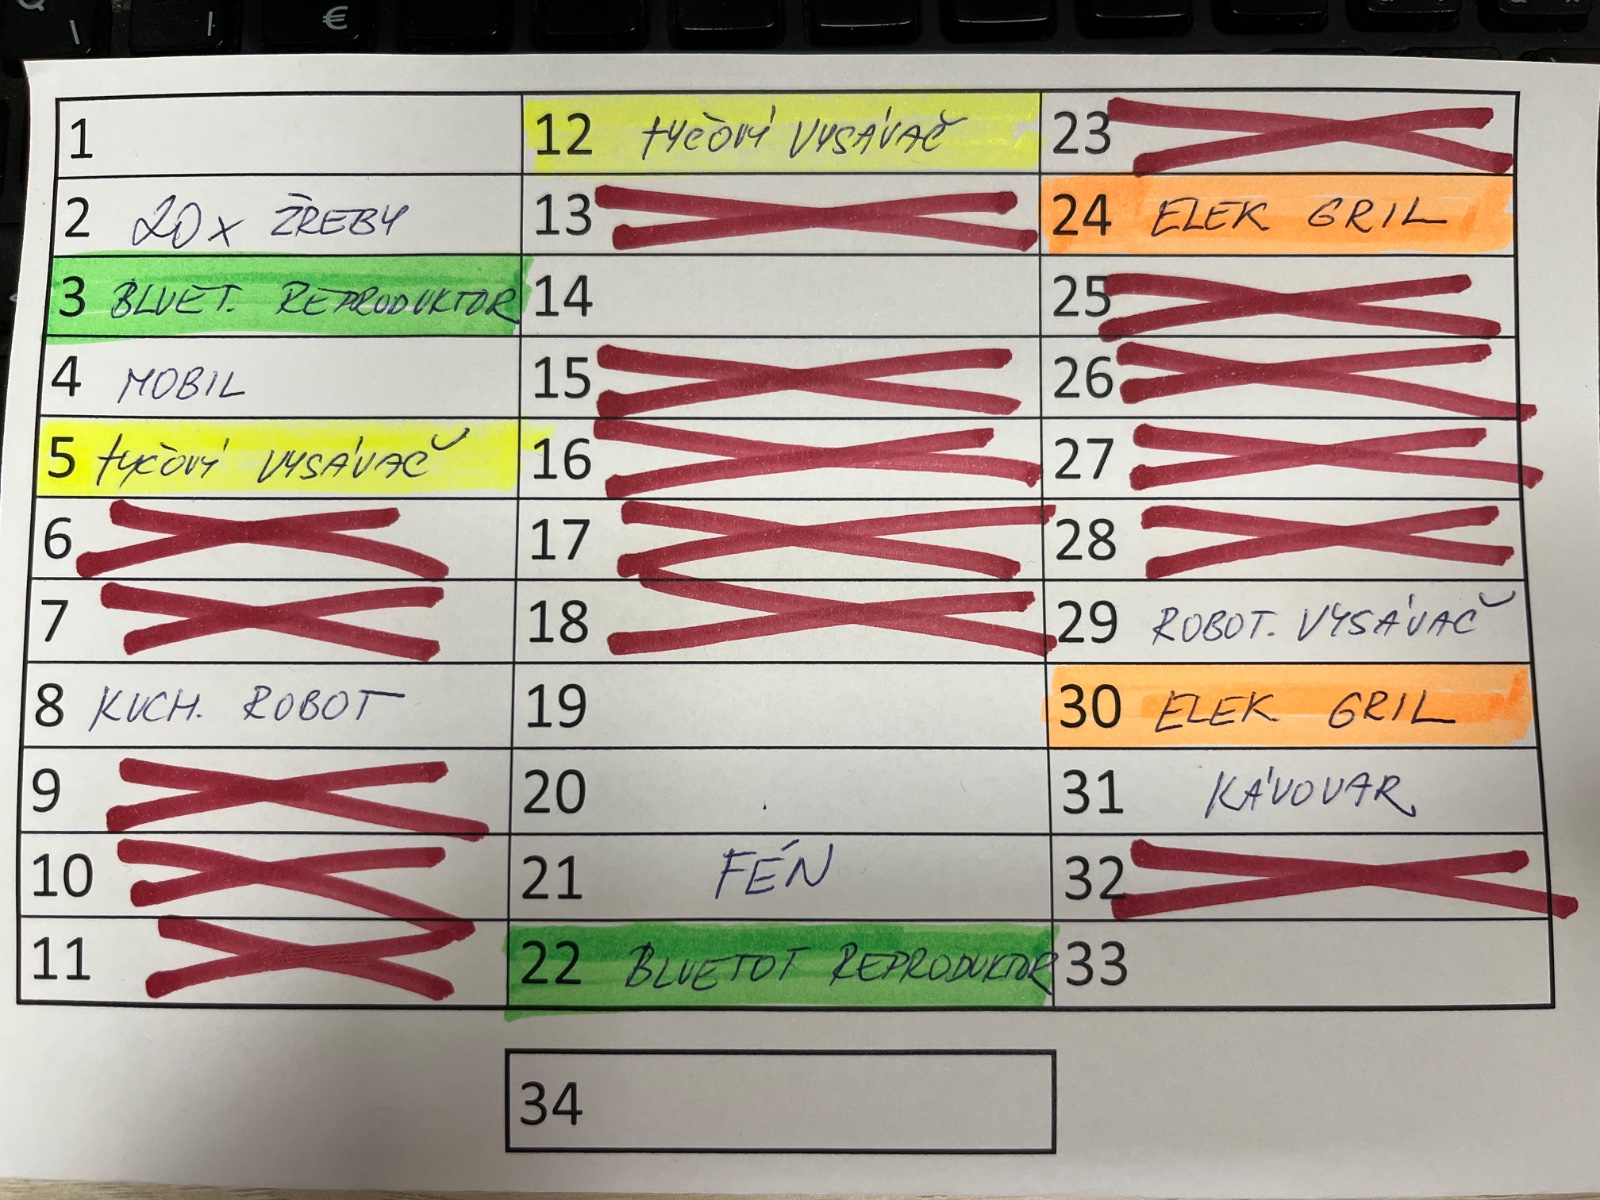 €
1
2 20x ŽREBY
3 BLUET. REPRODUKTOR
4 MOBIL
5 tyčový VYSÁVAČ
6
7
8 KUCH. ROBOT
9
10
11
12 tyčový VYSÁVAČ
13
14
15
16
17
18
19
20
21 FÉN
22 BLUETOT REPRODUKTOR
23
24 ELEK GRIL
25
26
27
28
29 ROBOT. VYSÁVAČ
30 ELEK GRIL
31 KÁVOVAR
32
33
34